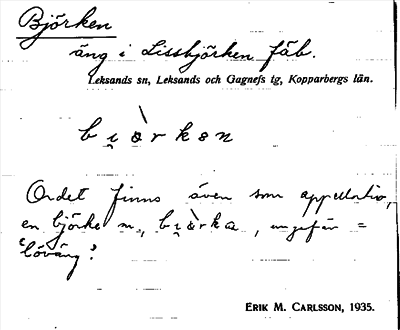 Björken
äng i Lissbjörken fäb.
Leksands sn, Leksands och Gagnefs tg, Kopparbergs län.
bi̯òrkən
Ordet finns även som appellativ,
en björke m., bi̯òrka, ungefär =
'löväng'.
ERIK M. CARLSSON, 1935.